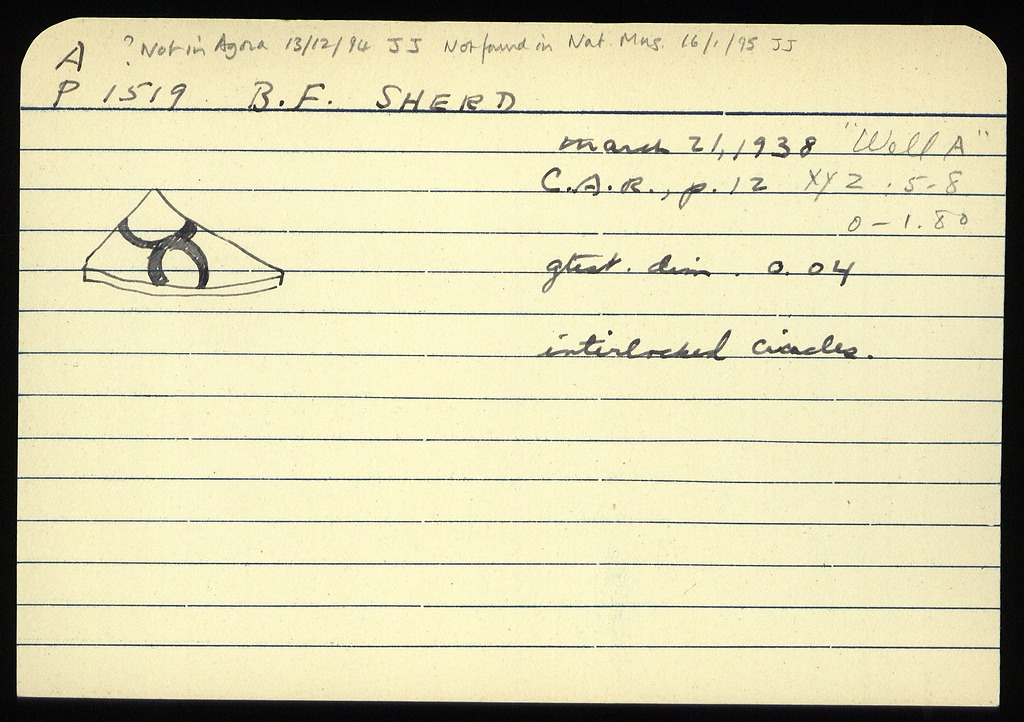 ? Not in Agora 13/12/94 JJ Not found in Nat. Mus. 16/1/95 JJ
A
P 1519 B.F. SHERD
March 21, 1938 "Well A"
C.A.R., p. 12 XYZ : 5-8
0 - 1.80
gtest. dim. 0.04
interlocked circles.